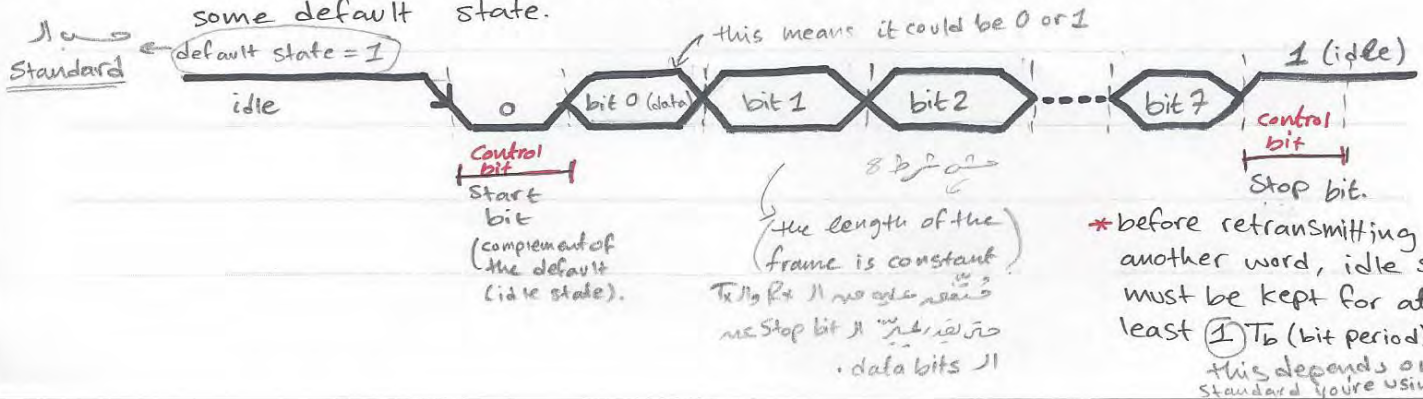 some default state.
حسب الـ
Standard
default state = 1
this means it could be 0 or 1
1 (idle)
idle
0
bit 0 (data)
bit 1
bit 2
bit 7
control bit
Start
bit
(complement of
the default
(idle state).
مش شرط 8
the length of the
frame is constant
متفق عليه بين الـ Rx والـ Tx
حتى نقدر نميّز الـ Stop bit عن
الـ data bits.
control
bit
Stop bit.
*before retransmitting
another word, idle s
must be kept for at
least 1 Tb (bit period)
this depends o
Standard you're usin